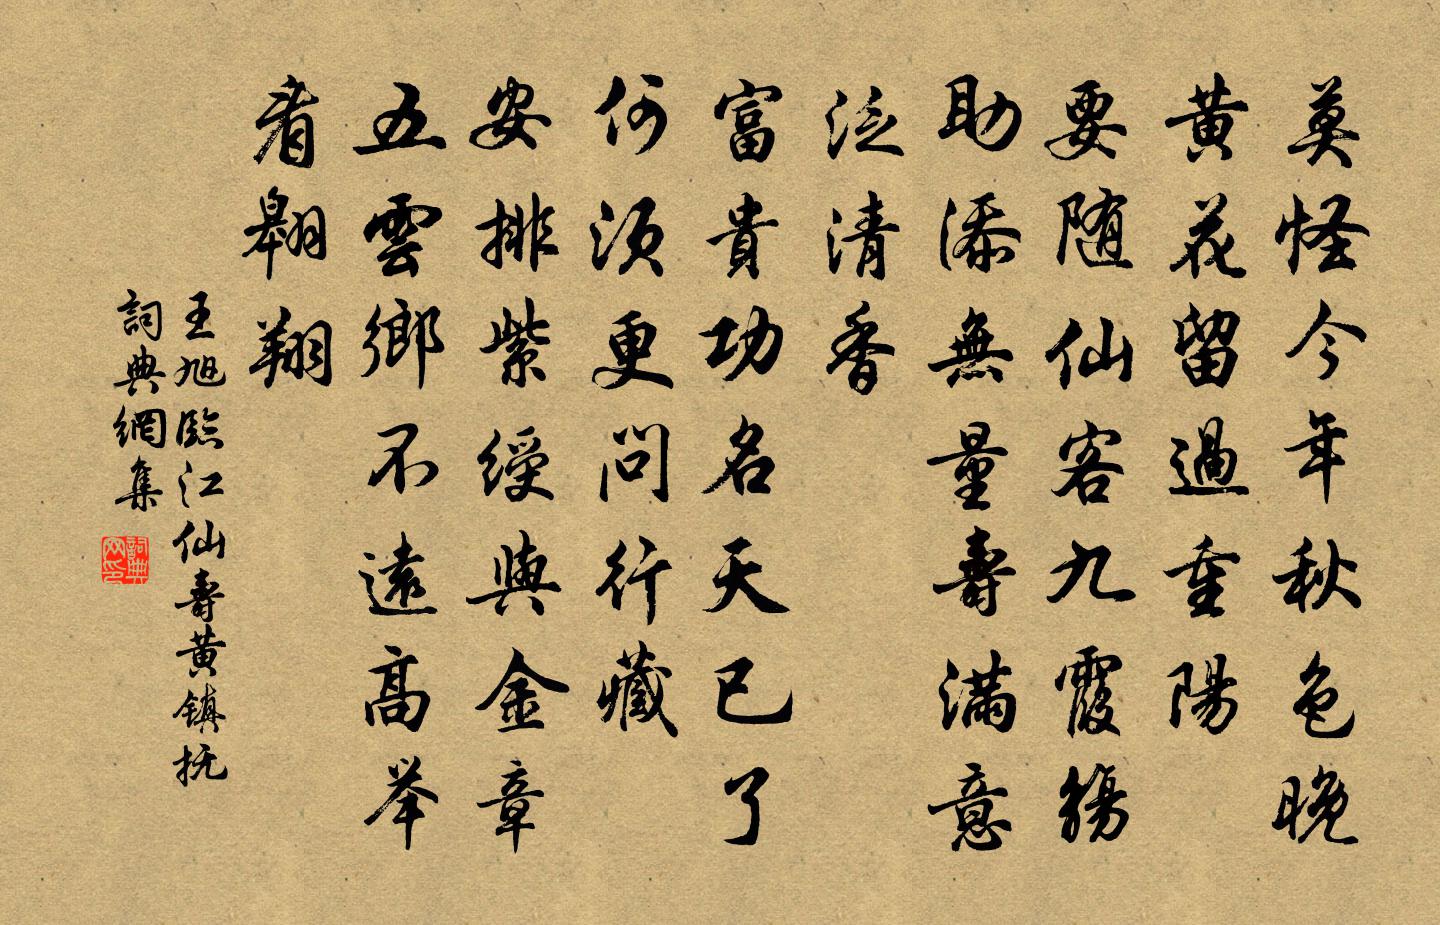 莫怪今年秋色晚
黄花留過重陽
要随仙客九霞觴
助添無量壽滿意
泛清香
富貴功名天已了
何須更問行藏
安排紫綬與金章
五雲鄉不遠高举
看翱翔
王旭臨江仙壽黄镇抚
詞典網集
詞典网印